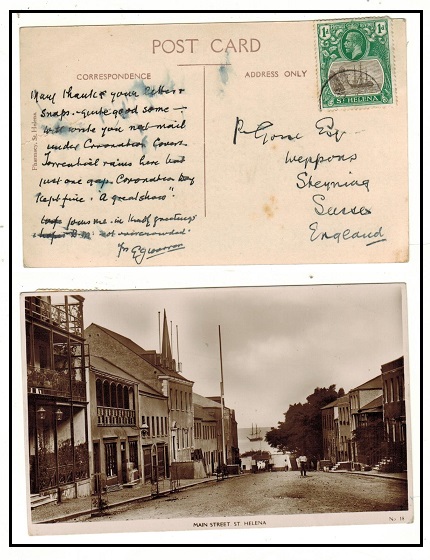 POST CARD
CORRESPONDENCE
ADDRESS ONLY
1d 1d
ST HELENA
Pharmacy, St. Helena
Many thanks for your letter &
snaps. quite good some —
will write you next mail
under Coronation Covers.
Torrential rains here but
just one gap. Coronation Day
kept fine. A great show".
joins me in
P. Gosse Esq
Weppons
Steyning
Sussex
England
MAIN STREET ST HELENA
No 19